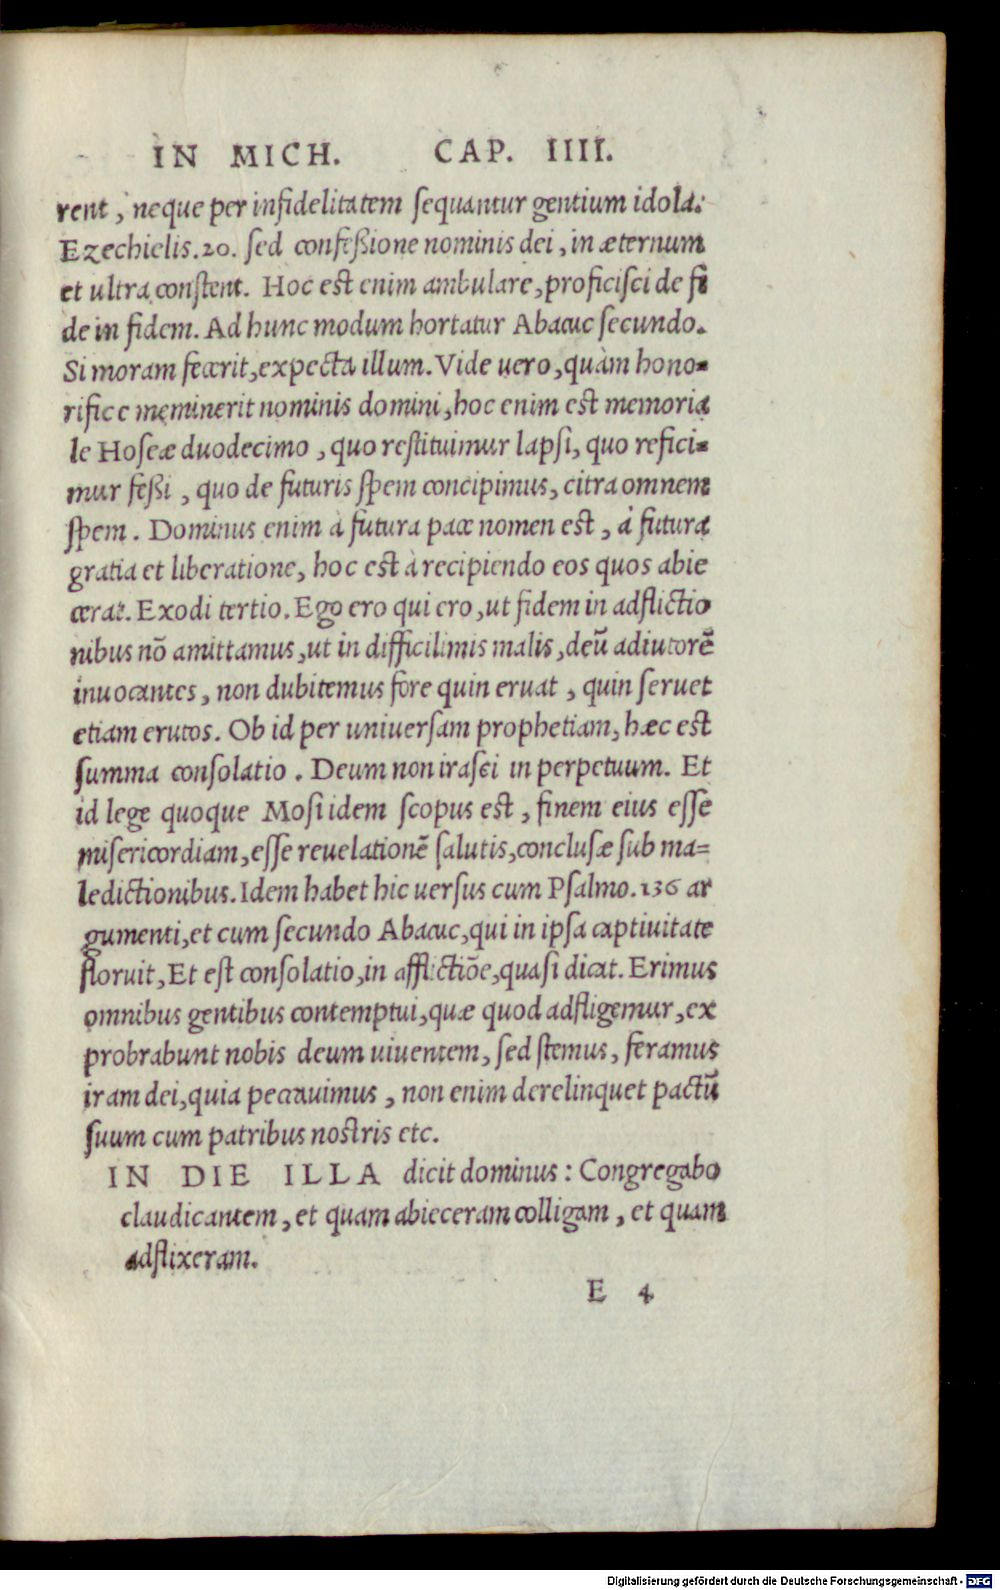 IN MICH. CAP. IIII.
rent, neque per infidelitatem sequantur gentium idola.
Ezechielis.20. sed confeßione nominis dei, in æternum
et ultra constent. Hoc est enim ambulare, proficisci de fi
de in fidem. Ad hunc modum hortatur Abacuc secundo.
Si moram fecerit, expecta illum. Vide uero, quàm hono-
rifice meminerit nominis domini, hoc enim est memoria
le Hoseæ duodecimo, quo restituimur lapsi, quo refici-
mur feßi, quo de futuris spem concipimus, citra omnem
spem. Dominus enim à futura pace nomen est, à futura
gratia et liberatione, hoc est à recipiendo eos quos abie
cerat. Exodi tertio. Ego ero qui ero, ut fidem in adflictio
nibus nō amittamus, ut in difficilimis malis, deū adiutorē
inuocantes, non dubitemus fore quin eruat, quin seruet
etiam erutos. Ob id per uniuersam prophetiam, hæc est
summa consolatio. Deum non irasci in perpetuum. Et
id lege quoque Mosi idem scopus est, finem eius esse
misericordiam, esse reuelationē salutis, conclusæ sub ma-
ledictionibus. Idem habet hic uersus cum Psalmo.136 ar
gumenti, et cum secundo Abacuc, qui in ipsa captiuitate
floruit, Et est consolatio, in afflictiōe, quasi dicat. Erimus
omnibus gentibus contemptui, quæ quod adfligemur, ex
probrabunt nobis deum uiuentem, sed stemus, feramus
iram dei, quia peccauimus, non enim derelinquet pactū
suum cum patribus nostris etc.
IN DIE ILLA dicit dominus: Congregabo
claudicantem, et quam abieceram colligam, et quam
adflixeram.
E 4
Digitalisierung gefördert durch die Deutsche Forschungsgemeinschaft - DFG